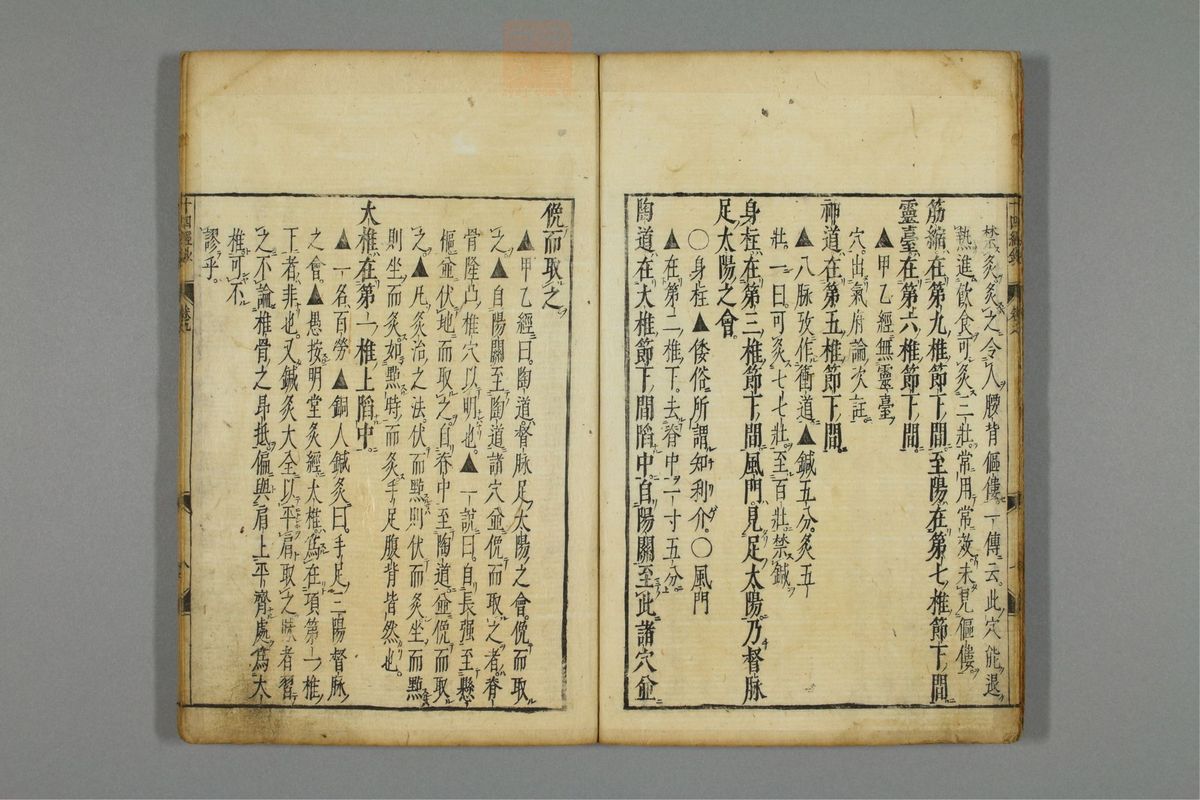 禁灸灸之令人腰背傴僂一傳云此穴能退
熱進飲食可灸三壯常用常效未見傴僂
筋縮在第九椎節下間至陽在第七椎節下間
靈臺在第六椎節下間
▲甲乙經無靈臺
穴出氣府論次註
神道在第五椎節下間
▲八脉攷作衝道▲鍼五分灸五
壯一曰可灸七七壯至百壯禁鍼
身柱在第三椎節下間風門見足太陽乃督脉
足太陽之會
○身柱▲倭俗所謂知利介○風門
▲在第二椎下去脊中一寸五分
陶道在大椎節下間陷中自陽關至此諸穴並
俛而取之
▲甲乙經曰陶道督脉足太陽之會俛而取
之▲自陽關至陶道諸穴並俛而取之者脊
骨隆凸椎穴以明也▲一說曰自長强至懸
樞並伏地而取之自脊中至陶道並俛而取
之▲凡灸治之法伏而點則伏而灸坐而點
則坐而灸如點時而灸手足腹背皆然也
大椎在第一椎上陷中
▲一名百勞▲銅人鍼灸曰手足三陽督脉
之會▲愚按明堂灸經大椎爲在項第一椎
下者非也又鍼灸大全以平肩取之昧者習
之不論椎骨之昻抵偏與肩上平齊處爲大
椎可不
謬乎
十四經